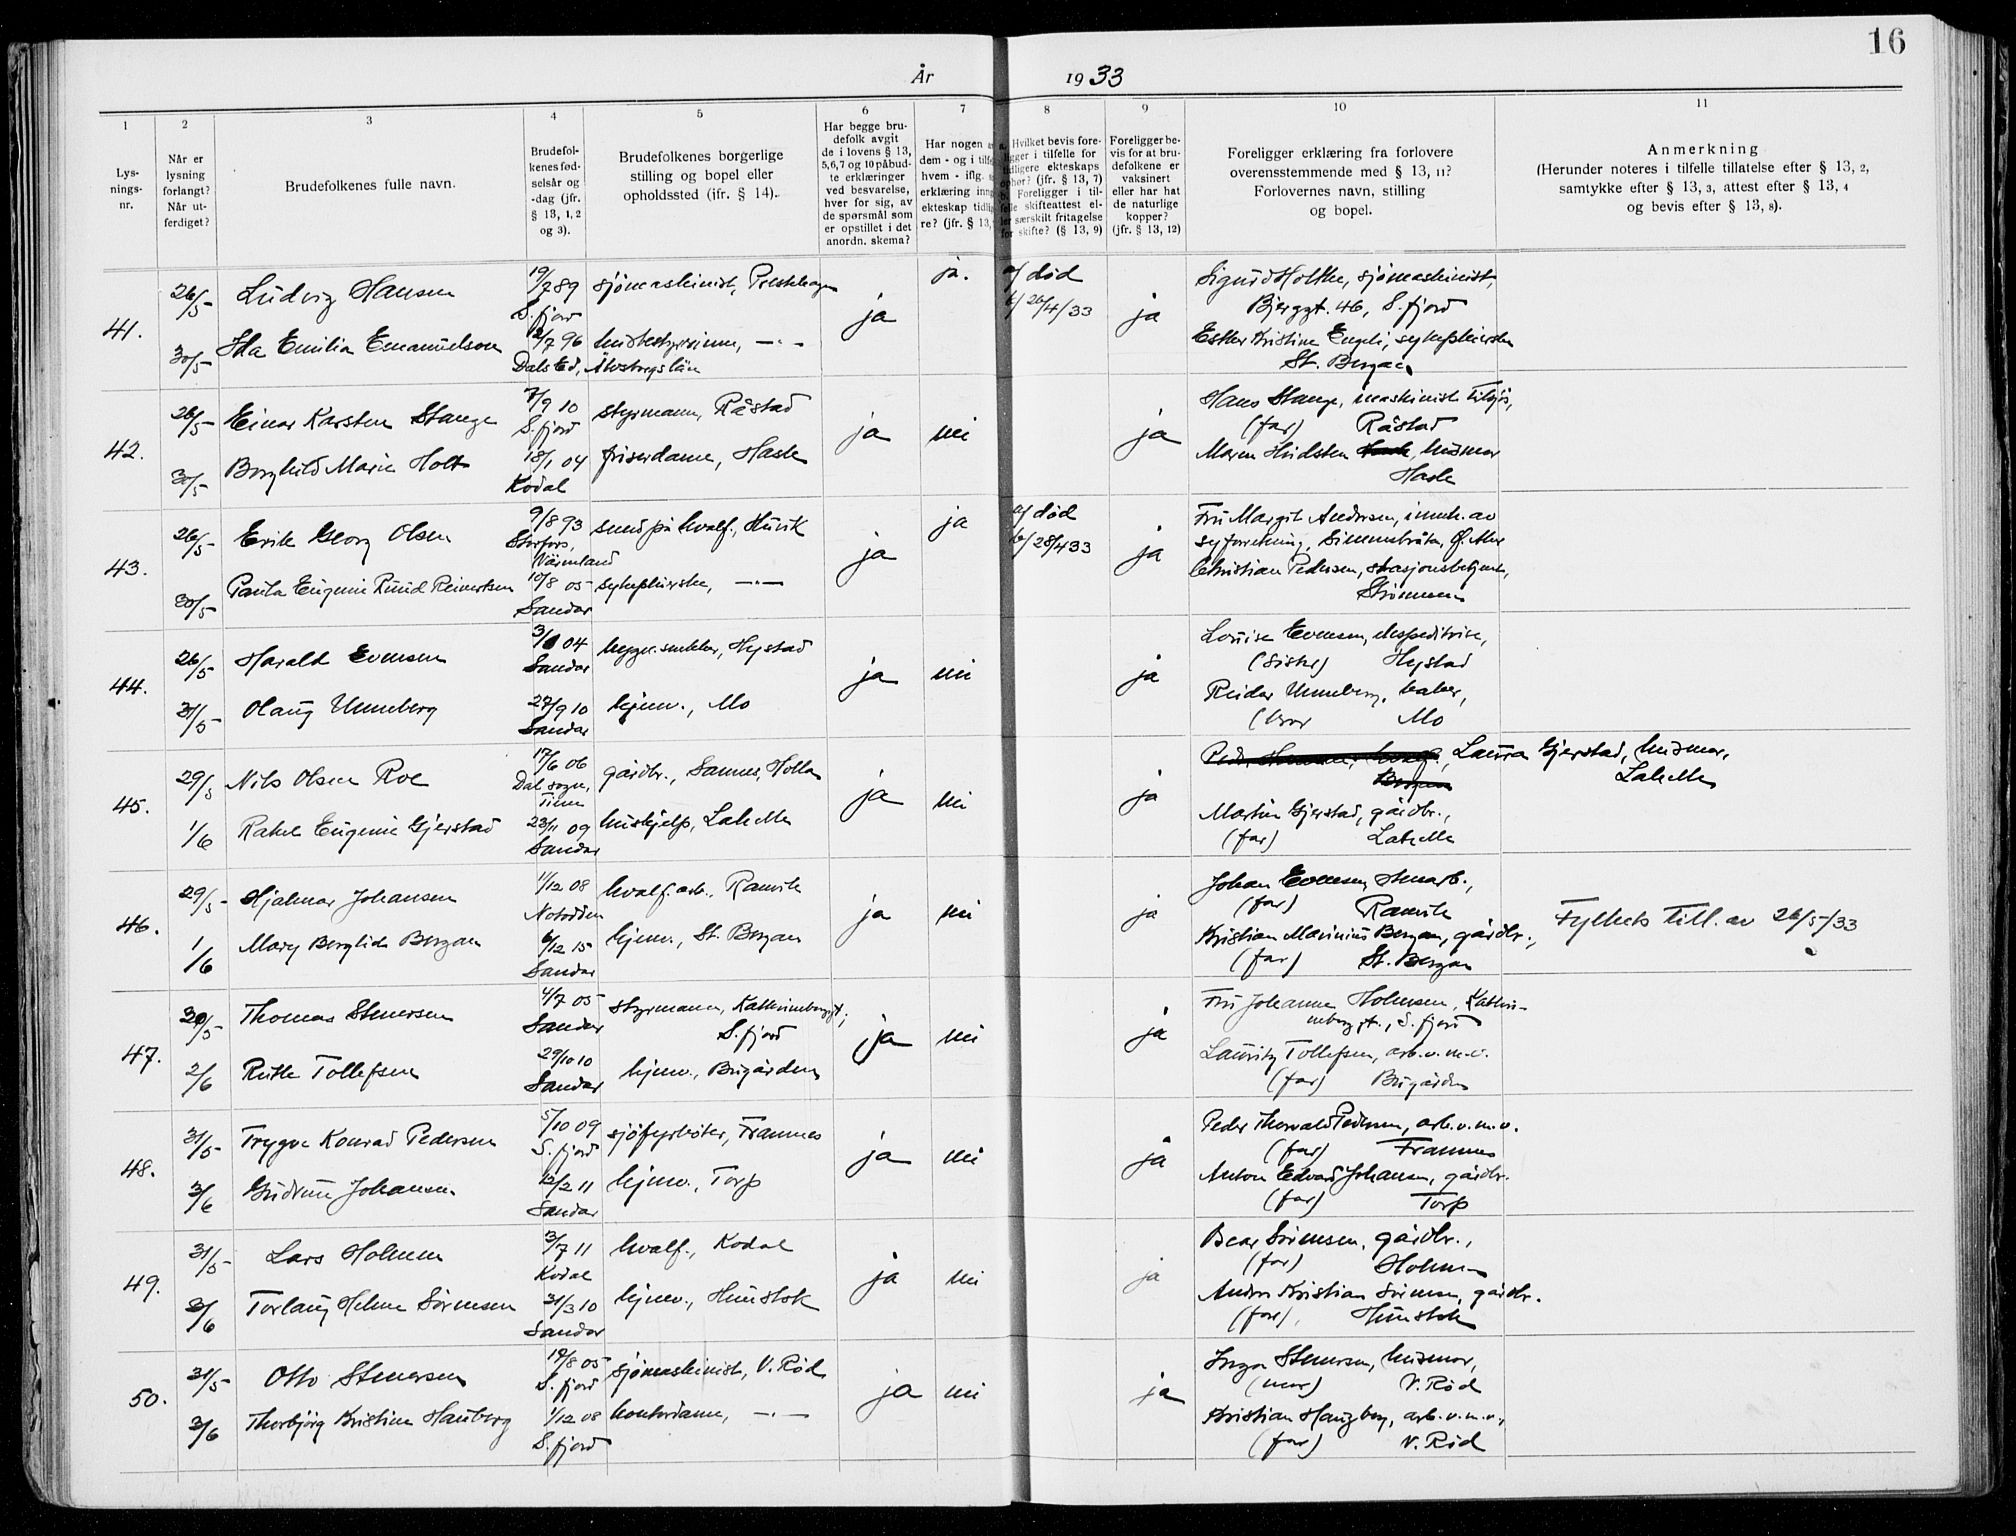 16
År 1933
1
2
3
4
5
6
7
8
9
10
11
Lys-
nings-
nr.
Når er
lysning
forlangt?
Når ut-
ferdiget?
Brudefolkenes fulle navn.
Brudefol-
kenes fød-
selsår og
-dag (jfr.
§ 13, 1, 2
og 3).
Brudefolkenes borgerlige
stilling og bopel eller
opholdssted (jfr. § 14).
Har begge bru-
defolk avgit
de i lovens § 13,
5, 6, 7 og 10 påbud-
te erklæringer
ved besvarelse,
hver for sig, av
de spørsmål som
er opstillet i det
anordn. skema?
Har nogen
dem - og i tilf
hvem - iflg.
erklæring inn
ekteskap tidlig
re? (jfr. § 13,
Hvilket bevis fore-
ligger i tilfelle for
tidligere ekteskaps
ophør? (jfr. § 13, 7)
b. Foreligger i til-
felle skifteattest el-
ler særskilt fritagelse
for skifte? (§ 13, 9)
Foreligger be-
vis for at bru-
defolkene er
vaksinert
eller har hat
de naturlige
kopper?
(jfr. § 13, 12)
Foreligger erklæring fra forlovere
overensstemmende med § 13, 11?
Forlovernes navn, stilling
og bopel.
Anmerkning
(Herunder noteres i tilfelle tillatelse efter § 13, 2,
samtykke efter § 13, 3, attest efter § 13, 4
og bevis efter § 13, 8).
41.
26/5
Ludvig Hansen
19/7 89
S.fjord
sjømaskinist,
ja
ja.
a/ død
b/ 26/4/33
ja
Sigurd Holthe, sjømaskinist,
Bjerggt. 46, S.fjord
30/5
Ida Emilia Emanuelson
12/7 96
Dals Ed, Älvsborgs län
husbestyrerinne, -"-
Esther Kristine Engeli, sykepleierske
St. Bergan
42.
26/5
Einar Karsten Stange
7/9 10
S.fjord
styrmann, Råstad
ja
nei
ja
Hans Stange, maskinist tilsjøs,
(far) Råstad
30/5
Borghild Marie Holt
18/1 04
Kodal
friserdame, Hasle
Maren Hvidsten, husmor
Hasle
43.
26/5
Erik Georg Olsen
9/8 93
Storfors,
Värmland
smed på hvalf., Huvik
ja
ja
a/ død
b/ 28/4 33
ja
Fru Margit Andersen, inneh. av
syforretning,
30/5
Paula Eugenie Ruud Reinertsen
10/8 05
Sandar
sykepleierske, -"-
Christian Pedersen, stasjonsbetjent,
Strømmen
44.
26/5
Harald Evensen
04
Sandar
bygn.snekker, Hystad
ja
nei
ja
Louise Evensen, ekspeditrise,
(søster) Hystad
31/5
Olaug Unneberg
28/9 10
Sandar
hjemv., Mo
Reidar Unneberg, baker,
(bror Mo
45.
29/5
Nils Olsen Roe
17/6 06
Dal sogn,
Tinn
gårdbr., Sannes, Holla
ja
nei
ja
Laura Gjerstad, husmor,
Lahelle
1/6
Rakel Eugenie Gjerstad
23/11 09
Sandar
hushjelp, Lahelle
Martin Gjerstad, gårdbr.,
(far) Lahelle
46.
29/5
Hjalmar Johansen
1/12 08
Notodden
hvalf.arb., Ranvik
ja
nei
ja
Johan Evensen, stenarb.,
(far) Ranvik
Fylkets till. av 26/5/33
1/6
Mary Berglid Bergan
6/12 15
Sandar
hjemv., St. Bergan
Kristian Marinius Bergan, gårdbr.,
(far) St. Bergan
47.
30/5
Thomas Stenersen
4/7 05
Sandar
styrmann, Kathrineborggt,
S.fjord
ja
nei
ja
Fru Johanne Holmsen, Kathri-
neborggt., S.fjord
2/6
Ruth Tollefsen
29/10 10
Sandar
hjemv., Bugården
Lauritz Tollefsen, arb.v.m.v.
(far) Bugården
48.
31/5
Trygve Konrad Pedersen
5/10 09
S.fjord
sjøfyrbøter, Framnes
ja
nei
ja
Peder Thorvald Pedersen, arb.v.m.v.
(far) Framnes
3/6
Gudrun Johansen.
12/2 11
Sandar
hjemv., Torp
Anton Edvard Johansen, gårdbr.
(far) Torp
49.
31/5
Lars Holmen
3/7 11
Kodal
hvalf., Kodal
ja
nei
ja
Bear Sørensen, gårdbr.,
(far) Holmen
3/6
Torlaug Helene Sørensen
31/3 10
Sandar
hjemv., Hunstok
Anders Kristian Sørensen, gårdbr.
(far), Hunstok
50.
31/5
Otto Stenersen
19/8 05
S.fjord
sjømaskinist, V. Rød
ja
nei
ja
Inga Stenersen, husmor,
(mor) V. Rød
3/6
Thorbjørg Kristine Hauberg
1/12 08
S.fjord
kontordame, -"-
Kristian Haugberg, arb.v.m.v.,
(far) V. Rød